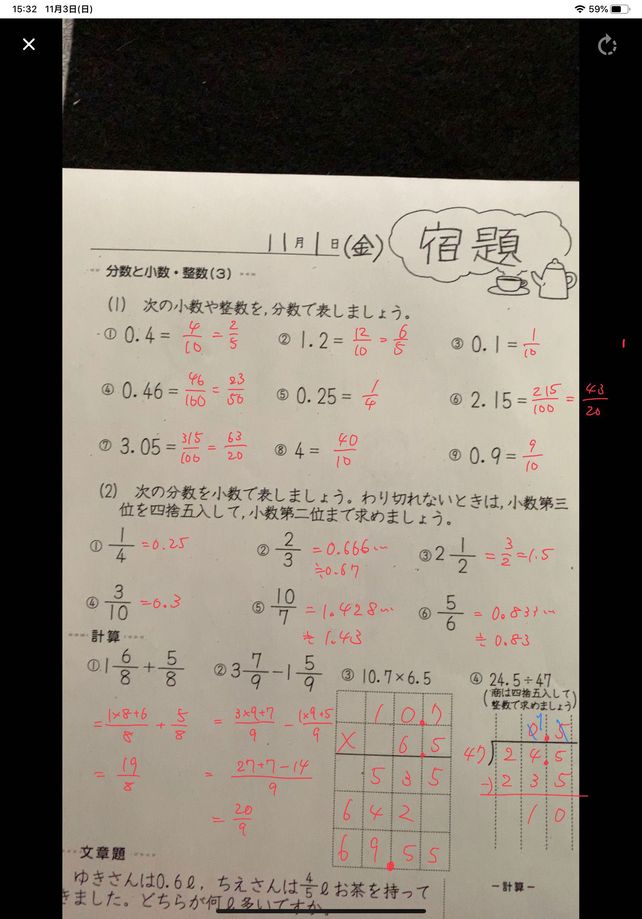 15:32 11月3日(日) 59%
11月1日(金)
宿題
分数と小数・整数(3)
(1) 次の小数や整数を,分数で表しましょう。
① 0.4= 4/10 = 2/5 ② 1.2= 12/10 = 6/5 ③ 0.1= 1/10
④ 0.46= 46/100 = 23/50 ⑤ 0.25= 1/4 ⑥ 2.15= 215/100 = 43/20
⑦ 3.05= 315/100 = 63/20 ⑧ 4= 40/10 ⑨ 0.9= 9/10
(2) 次の分数を小数で表しましょう。わり切れないときは,小数第三
位を四捨五入して,小数第二位まで求めましょう。
① 1/4 =0.25 ② 2/3 =0.666… ③ 2 1/2 = 3/2 =1.5
≒0.67
④ 3/10 =0.3 ⑤ 10/7 =1.428… ⑥ 5/6 =0.833…
≒1.43 ≒0.83
計算
① 1 6/8 + 5/8 ② 3 7/9 − 1 5/9 ③ 10.7×6.5 ④ 24.5÷47
(商は四捨五入して
整数で求めましょう)
= 1×8+6/8 + 5/8
= 19/8
= 3×9+7/9 − 1×9+5/9
= 27+7−14/9
= 20/9
10.7
× 6.5
535
642
69.55
47)24.5
−)235
10
文章題
ゆきさんは0.6ℓ,ちえさんは4/5ℓお茶を持って
きました。どちらが何ℓ多いですか。
−計算−